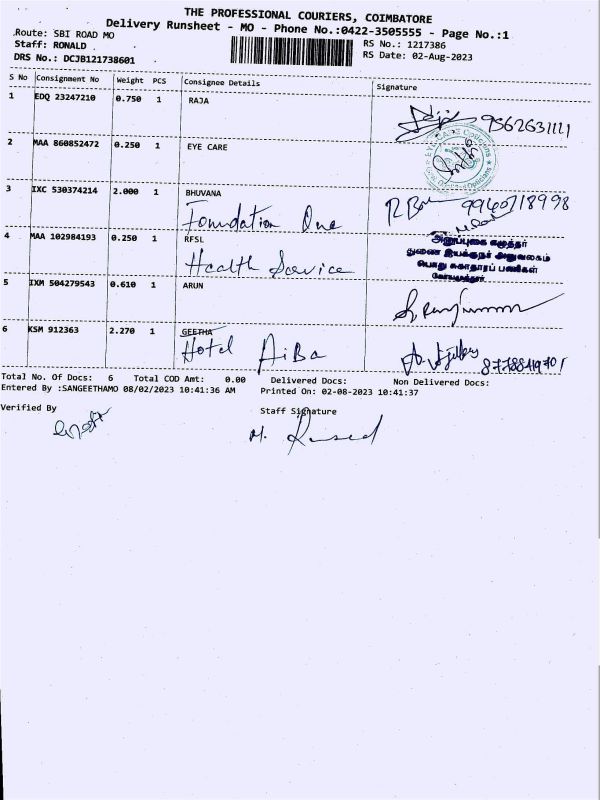 THE PROFESSIONAL COURIERS, COIMBATORE
Delivery Runsheet - MO - Phone No.:0422-3505555 - Page No.:1
Route: SBI ROAD MO
RS No.: 1217386
Staff: RONALD
RS Date: 02-Aug-2023
DRS No.: DCJB121738601
S No Consignment No Weight PCS Consignee Details Signature
1 EDQ 23247210 0.750 1 RAJA
9362631111
2 MAA 860852472 0.250 1 EYE CARE
EYE CARE Opticians
3 IXC 530374214 2.000 1 BHUVANA
Foundation One
4 MAA 102984193 0.250 1 RFSL
Health Service
அனுப்புகை எழுத்தர்
துணை இயக்குநர் அலுவலகம்
பொது சுகாதாரப் பணிகள்
கோயமுத்தூர்.
5 IXM 504279543 0.610 1 ARUN
6 KSM 912363 2.270 1 GEETHA
Hotel AiBa
Total No. Of Docs: 6 Total COD Amt: 0.00 Delivered Docs: Non Delivered Docs:
Entered By :SANGEETHAMO 08/02/2023 10:41:36 AM Printed On: 02-08-2023 10:41:37
Verified By Staff Signature